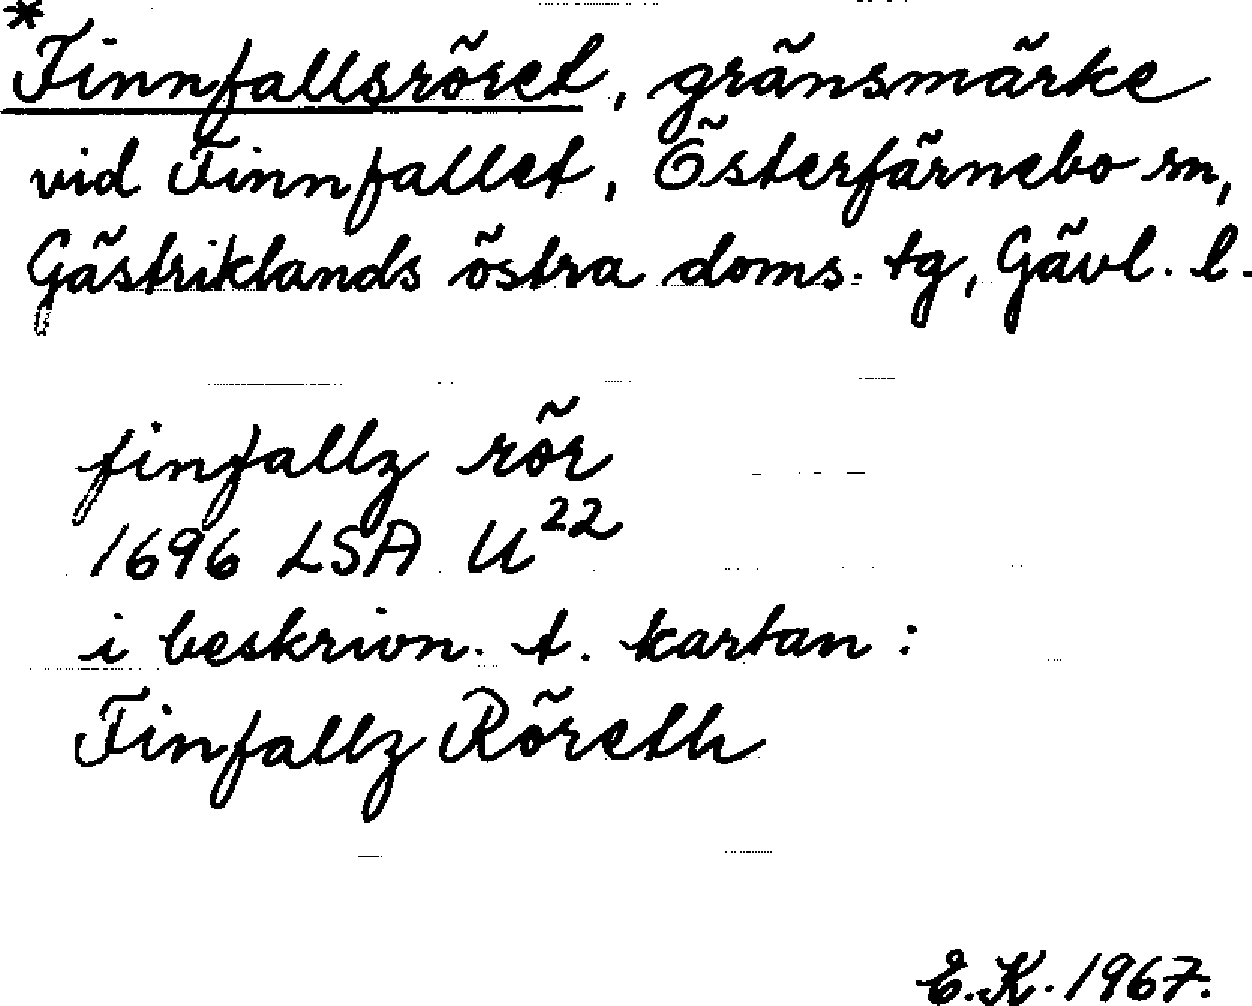 *Finnfallsröret, gränsmärke
vid Finnfallet, Österfärnebo sn,
Gästriklands östra doms. tg, Gävl. l.
finfallz rör
1696 LSA U²²
i beskrivn. t. kartan:
Finfallz Röreth
E.K. 1967.